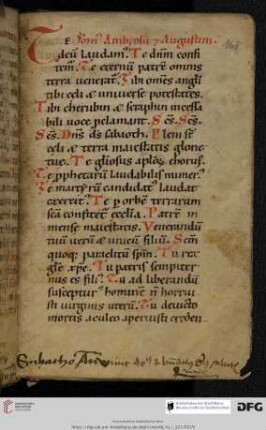 Te Ambrosii ⁊ Augustini.
deum laudam⁹. Te dñm confi
tem̃. Te eternũ patrẽ omnis
terra venerat̃. Tibi om̃es angli
tibi celi ⁊ universe potestates.
Tibi cherubin ⁊ seraphin incessa
bili voce ꝓclamant. Sc̃s. Sc̃s.
Sc̃s. Dñs ds̃ sabaoth. Pleni st̃
celi ⁊ terra maiestatis glorie
tue. Te gl̃iosus apl̃oꝝ chorus.
Te ꝓphetarũ laudabilis numer⁹.
Te martyrũ candidat⁹ laudat
exercit⁹. Te ꝑ orbẽ terrarum
sc̃a confitet̃ eccl̃ia. Patrẽ in
mense maiestatis. Venerandũ
tuũ verũ ⁊ unicũ filiũ. Sc̃m
quoqꝫ paraclitũ sp̃m. Tu rex
gl̃e xp̃e. Tu patris sempiter
nus es fili⁹. Tu ad liberandũ
suscepturus hominẽ nõ horrui
sti virginis uterũ. Tu devicto
mortis aculeo aperuisti credẽn
DFG